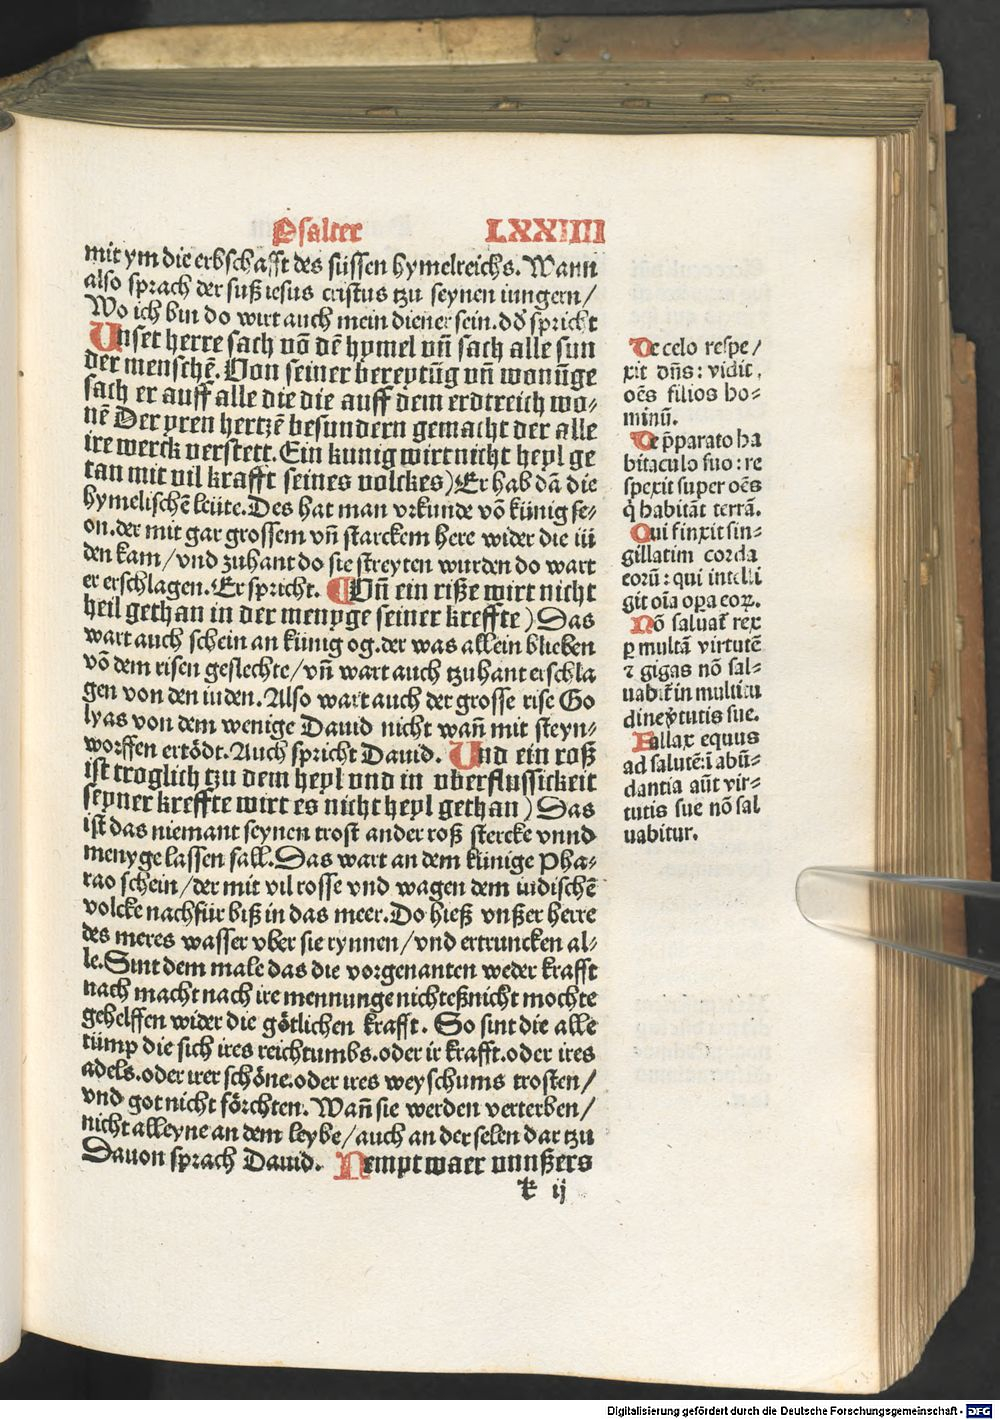 Psalter LXXIIII
mit ym die erbschafft des süssen hymelreichs. Wann
also sprach der suß iesus cristus tzu seynen iungern /
Wo ich bin do wirt auch mein diener sein. dď spricht
Unser herre sach vō dē hymel vn̄ sach alle sun
der menschē. Von seiner bereytūg vn̄ wonūge
sach er auff alle die die auff dem erdtreich wo⸗
nē Der yren hertzē besundern gemacht der alle
ire werck verstett. Ein kunig wirt nicht heyl ge
tan mit vil krafft seines volckes) Er hab dā die
hymelischē leüte. Des hat man vrkunde vō künig se⸗
on. der mit gar grossem vn̄ starckem here wider die iii
den kam / vnd zuhant do sie streyten wurden do wart
er erschlagen. Er spricht. Vn̄ ein riße wirt nicht
heil gethan in der menyge seiner kreffte) Das
wart auch schein an künig og. der was allein blieben
vō dem risen geslechte / vn̄ wart auch tzuhant erschla
gen von den iuden. Also wart auch der grosse rise Go
lyas von dem wenige Dauid nicht wan̄ mit steyn⸗
worffen ertödt. Auch spricht Dauid. Und ein roß
ist troglich tzu dem heyl vnd in vberflussickeit
seyner kreffte wirt es nicht heyl gethan) Das
ist das niemant seynen trost an der roß stercke vnnd
menyge lassen sall. Das wart an dem künige Pha⸗
rao schein / der mit vil rosse vnd wagen dem iudischē
volcke nachfür biß in das meer. Do hieß vnßer herre
des meres wasser vber sie rynnen / vnd ertruncken al⸗
le. Sint dem male das die vorgenanten weder krafft
nach macht nach ire mennunge nichteßnicht mochte
gehelffen wider die götlichen krafft. So sint die alle
tümp die sich ires reichtumbs. oder ir krafft. oder ires
adels. oder irer schöne. oder ires weyschums trosten /
vnd got nicht förchten. Wan̄ sie werden verterben /
nicht alleyne an dem leybe / auch an der selen dar tzu
Dauon sprach Dauid. Nempt waer vnnßers
k ij
De celo respe /
xit dn̄s : vidit,
oēs filios ho⸗
minū.
De p̄parato ha
bitaculo suo : re
spexit super oēs
q̇ habitāt terrā.
Qui finxit sin⸗
gillatim corda
eorū : qui intelli
git oīa oꝑa eoꝝ.
Nō saluat̄ rex
ꝑ multā virtutē
⁊ gigas nō sal⸗
uabit̄ in multitu
dine v̓tutis sue.
Fallax equus
ad salutē : ī abū⸗
dantia aūt vir⸗
tutis sue nō sal
uabitur.
Digitalisierung gefördert durch die Deutsche Forschungsgemeinschaft - DFG